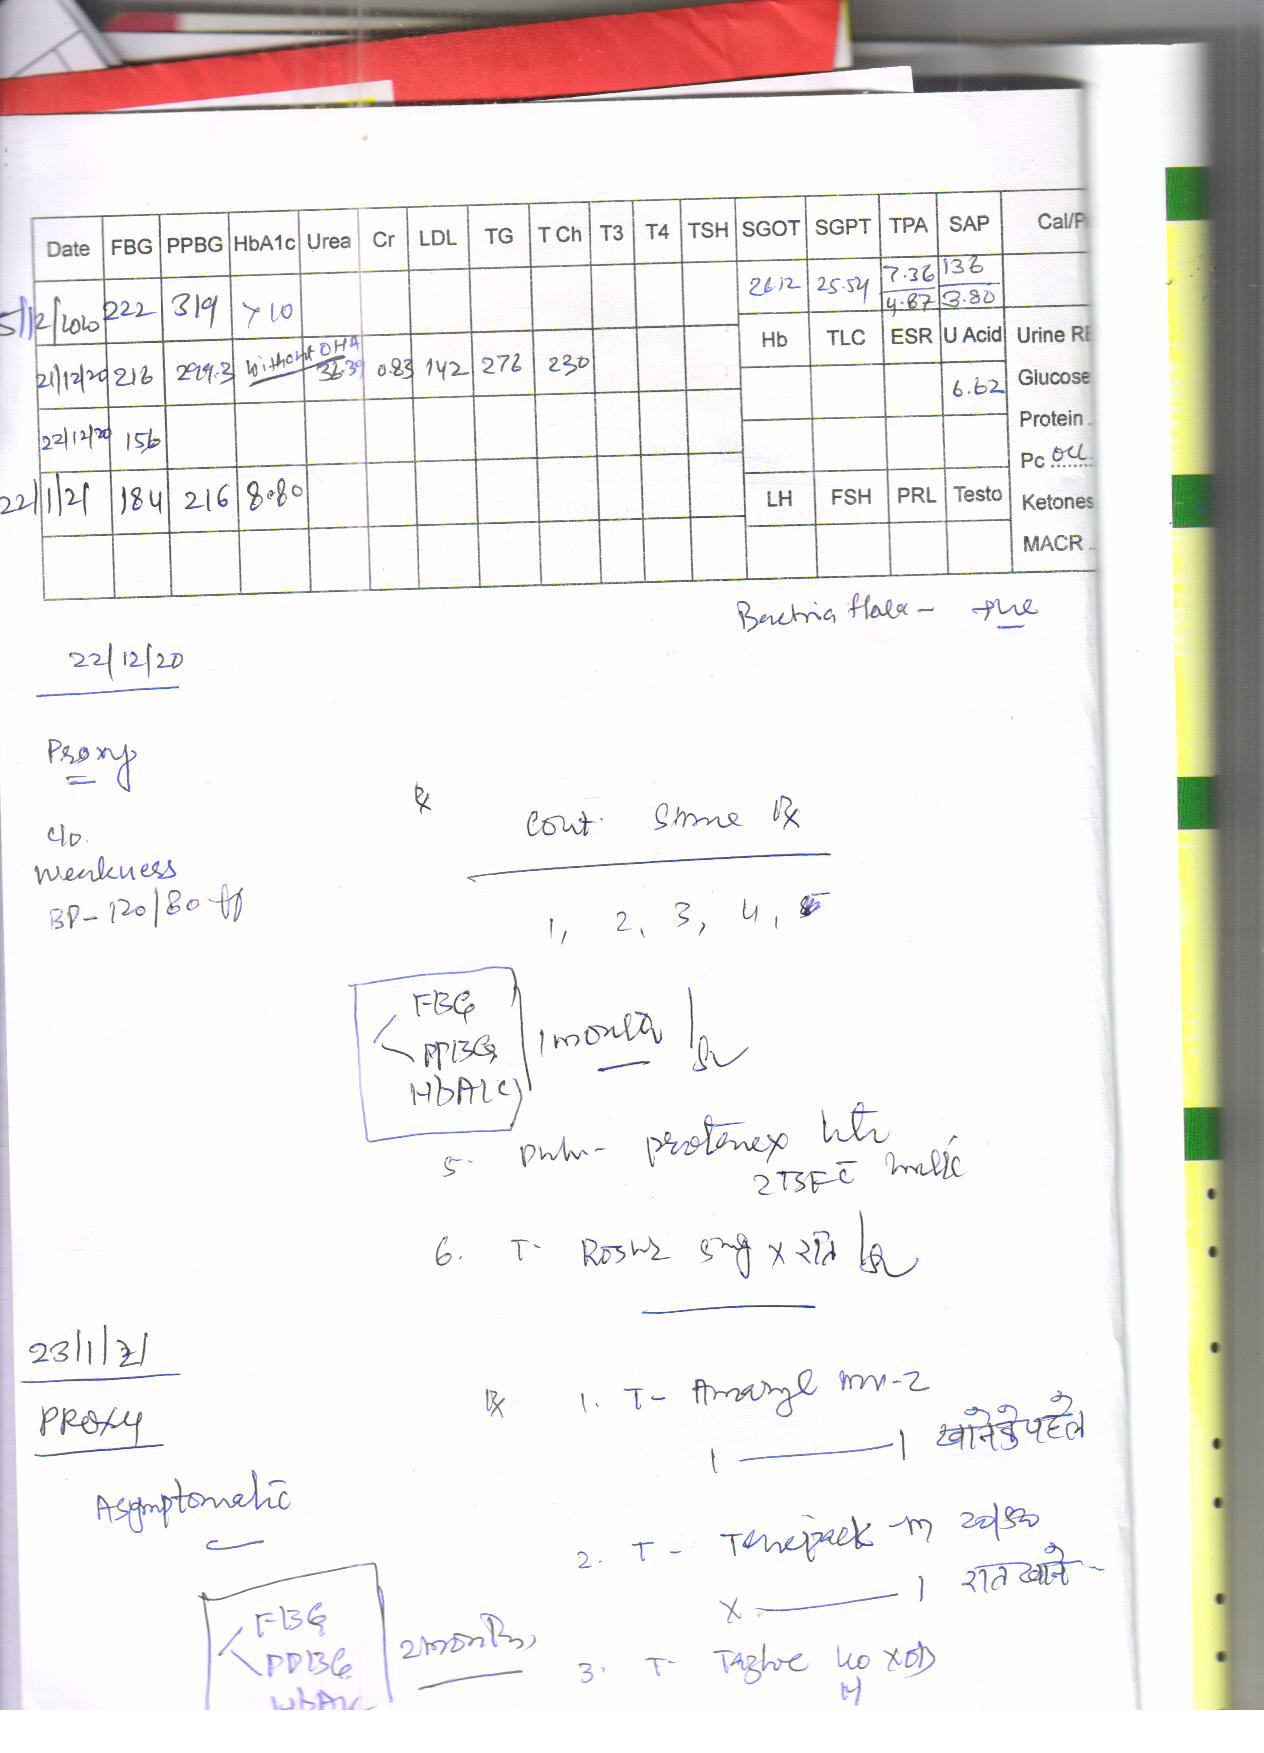 Date FBG PPBG HbA1c Urea Cr LDL TG T Ch T3 T4 TSH SGOT SGPT TPA SAP
5/12/2020 222 319 >10 26.12 25.54 7.36 136
4.87 3.80
Hb TLC ESR U Acid Urine
without OHA
21/12/20 216 299.3 36.39 0.83 142 276 230 6.62 Glucose
22/12/20 156 Protein
Pc occ
22/1/21 184 216 8.80 LH FSH PRL Testo Ketones
MACR
Bactria flora - +ve
22/12/20
Proxy
Rx
Cont. Same Rx
c/o.
Weakness
BP- 120/80
1, 2, 3, 4, 5
FBG
PPBG 1 month
HbA1c
5. protenex
2 TSF
6. T- 5mg x रात
23/1/21
PROXY
Rx 1. T- Amaryl mv-2
1 1 खाने के पहले
Asymptomatic
2. T- m 20/500
x 1 रात खाने
FBG
PPBG 2 months
HbA1c
3. T- 40 x OD